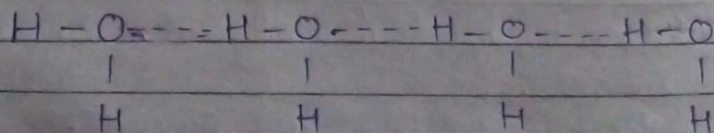 H - O ---- H - O ---- H - O ---- H - O
| | | |
H H H H